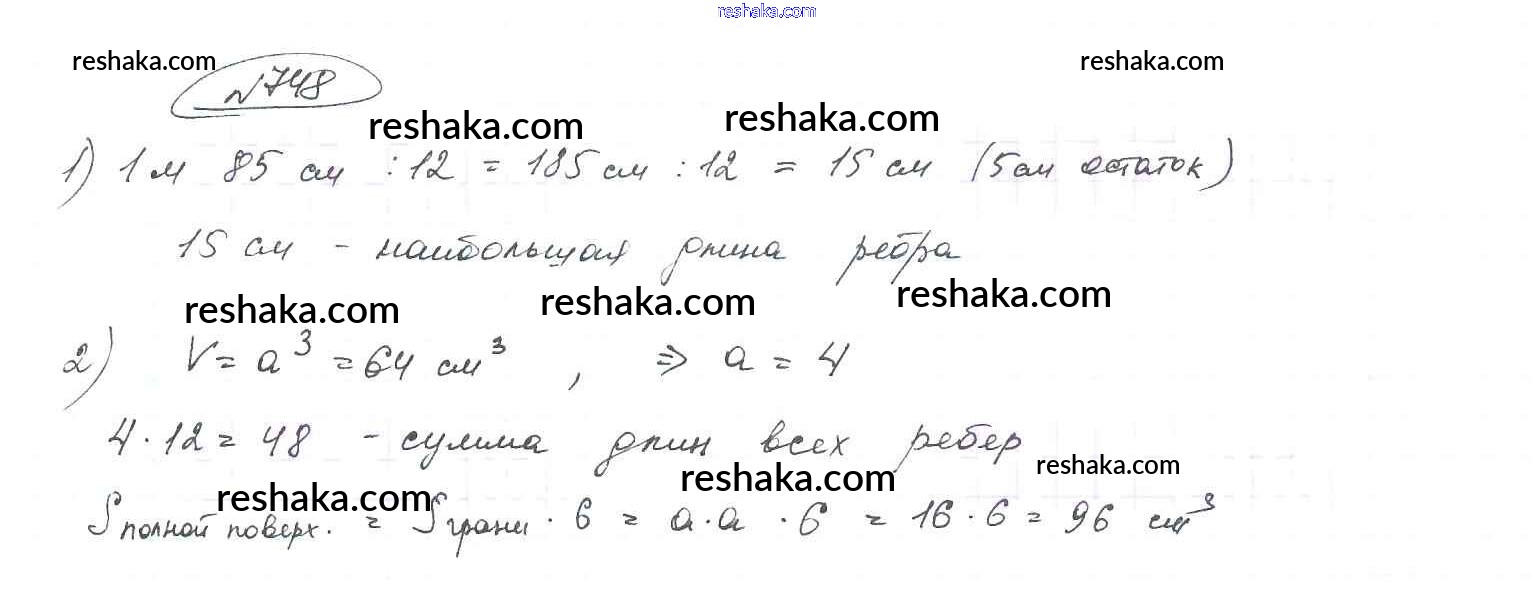 reshaka.com
reshaka.com reshaka.com
№748
reshaka.com reshaka.com
1) 1 м 85 см : 12 = 185 см : 12 = 15 см (5 см остаток)
15 см - наибольшая длина ребра
reshaka.com reshaka.com reshaka.com
2) V = a³ = 64 см³, ⇒ a = 4
4 · 12 = 48 - сумма длин всех ребер
reshaka.com reshaka.com reshaka.com
S полной поверх. = S грани · 6 = a · a · 6 = 16 · 6 = 96 см³